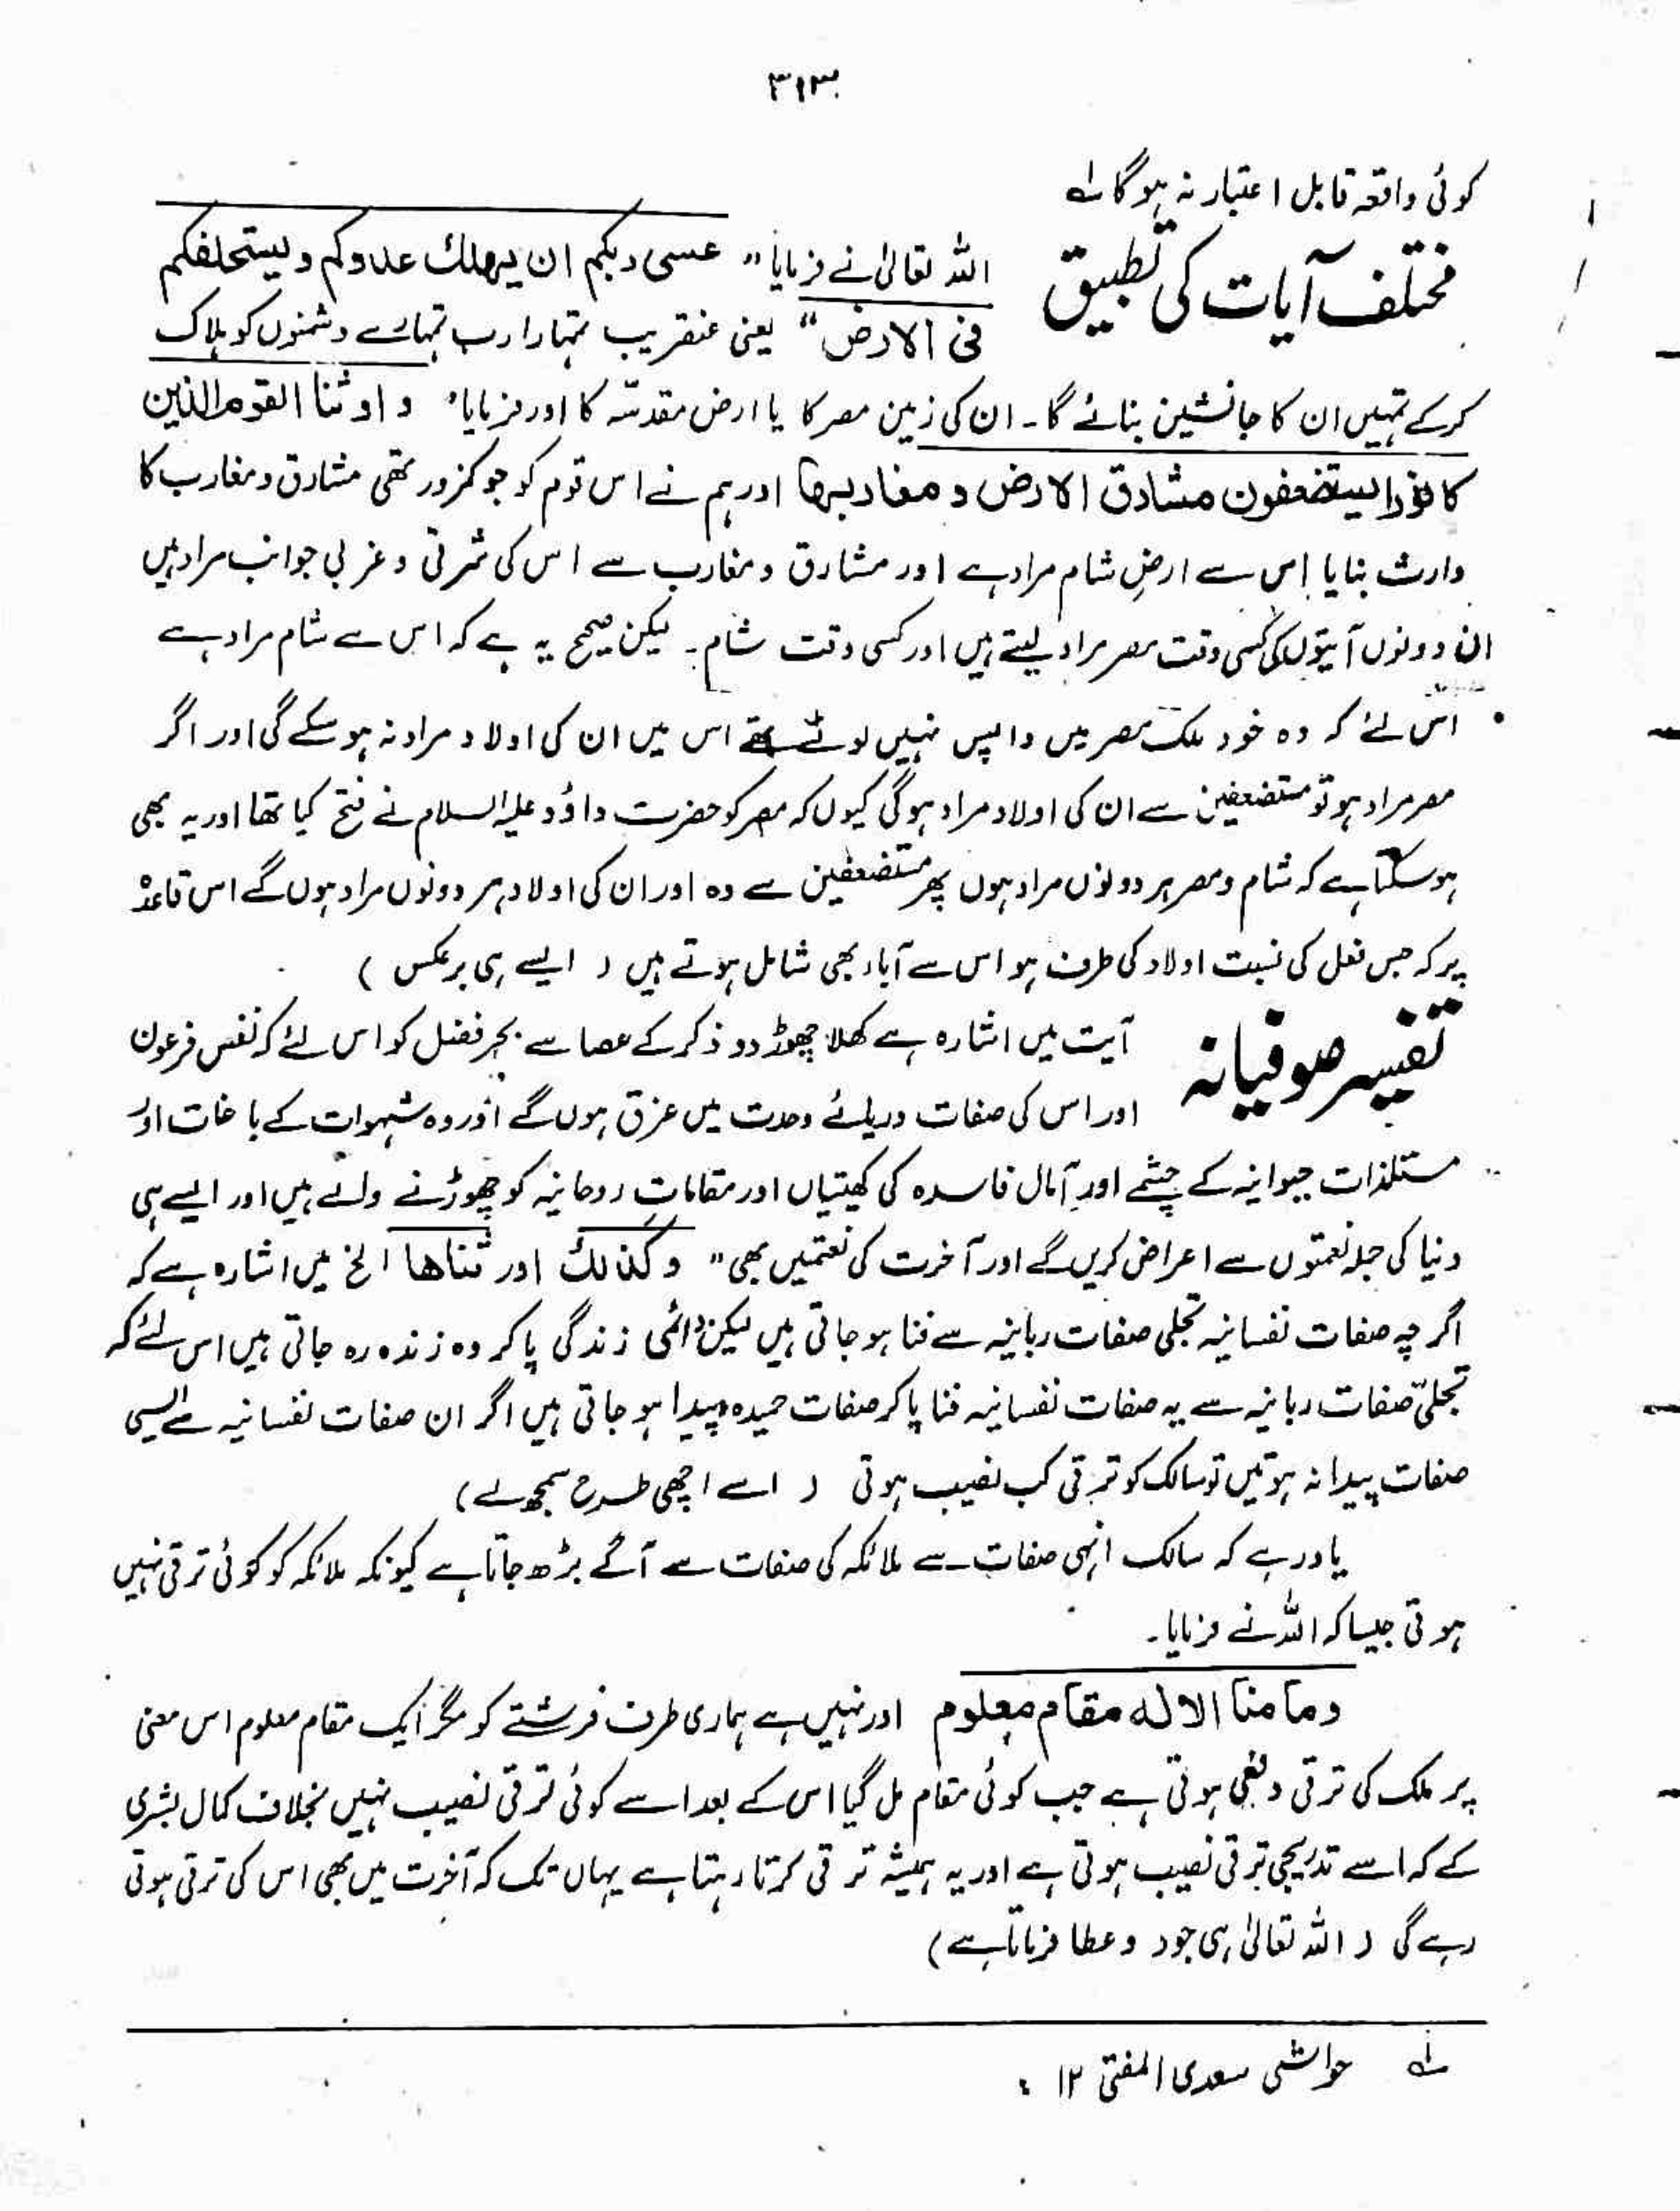 ۳۱۳
کوئی واقعہ قابل اعتبار نہ ہوگا ؎۱
مختلف آیات کی تطبیق
اللہ تعالیٰ نے فرمایا " عسی ربکم ان یھلک عدوکم ویستخلفکم
فی الارض " یعنی عنقریب تمہارا رب تمہارے دشمنوں کو ہلاک
کرکے تمہیں ان کا جانشین بنائے گا ۔ ان کی زمین مصر کا یا ارض مقدسہ کا اور فرمایا، و اورثنا القوم الذین
کانوا یستضعفون مشارق الارض و مغاربھا اور ہم نے اس قوم کو جو کمزور تھی مشارق و مغارب کا
وارث بنایا اس سے ارضِ شام مراد ہے اور مشارق و مغارب سے اس کی شرقی و غربی جوانب مراد ہیں
ان دونوں آیتوں کی کسی وقت مصر مراد لیتے ہیں اور کسی وقت شام ۔ لیکن صحیح یہ ہے کہ اس سے شام مراد ہے
اس لئے کہ وہ خود ملک مصر میں واپس نہیں لوٹے تھے اس میں ان کی اولاد مراد نہ ہوسکے گی اور اگر
مصر مراد ہو تو مستضعفین سے ان کی اولاد مراد ہوگی کیوں کہ مصر کو حضرت داؤد علیہ السلام نے فتح کیا تھا اور یہ بھی
ہوسکتا ہے کہ شام و مصر ہر دونوں مراد ہوں پھر مستضعفین سے وہ اور ان کی اولاد ہر دونوں مراد ہوں گے اس قاعدہ
پر کہ جس فعل کی نسبت اولاد کی طرف ہو اس سے آباء بھی شامل ہوتے ہیں ( ایسے ہی برعکس )
تفسیر صوفیانہ
آیت میں اشارہ ہے کھلا چھوڑ دو ذکر کے عصا سے بحر فضل کو اس لئے کہ نفس فرعون
اور اس کی صفات دریائے وحدت میں غرق ہوں گے اور وہ شہوات کے باغات اور
مستلذات حیوانیہ کے چشمے اور آمال فاسدہ کی کھیتیاں اور مقاماتِ روحانیہ کو چھوڑنے والے ہیں اور ایسے ہی
دنیا کی جملہ نعمتوں سے اعراض کریں گے اور آخرت کی نعمتیں بھی " وکذالک اورثناھا الخ میں اشارہ ہے کہ
اگرچہ صفات نفسانیہ تجلی صفات ربانیہ سے فنا ہو جاتی ہیں لیکن دائمی زندگی پا کر وہ زندہ رہ جاتی ہیں اس لئے کہ
تجلیّ صفات ربانیہ سے یہ صفات نفسانیہ فنا پا کر صفات حمیدہ پیدا ہو جاتی ہیں اگر ان صفات نفسانیہ سے ایسی
صفات پیدا نہ ہوتیں تو سالک کو ترقی کب نصیب ہوتی ( اسے اچھی طرح سمجھ لے )
یاد رہے کہ سالک انہی صفات سے ملائکہ کی صفات سے آگے بڑھ جاتا ہے کیونکہ ملائکہ کو کوئی ترقی نہیں
ہوتی جیسا کہ اللہ نے فرمایا ۔
وما منا الا لہ مقام معلوم اور نہیں ہے ہماری طرف فرشتے کو مگر ایک مقام معلوم اس معنی
پر ملک کی ترقی دفعی ہوتی ہے جب کوئی مقام مل گیا اس کے بعد اسے کوئی ترقی نصیب نہیں بخلاف کمال بشری
کے کہ اسے تدریجی ترقی نصیب ہوتی ہے اور یہ ہمیشہ ترقی کرتا رہتا ہے یہاں تک کہ آخرت میں بھی اس کی ترقی ہوتی
رہے گی ( اللہ تعالیٰ ہی جود و عطا فرماتا ہے )
؎۱ حواشی سعدی المفتی ۱۲ :